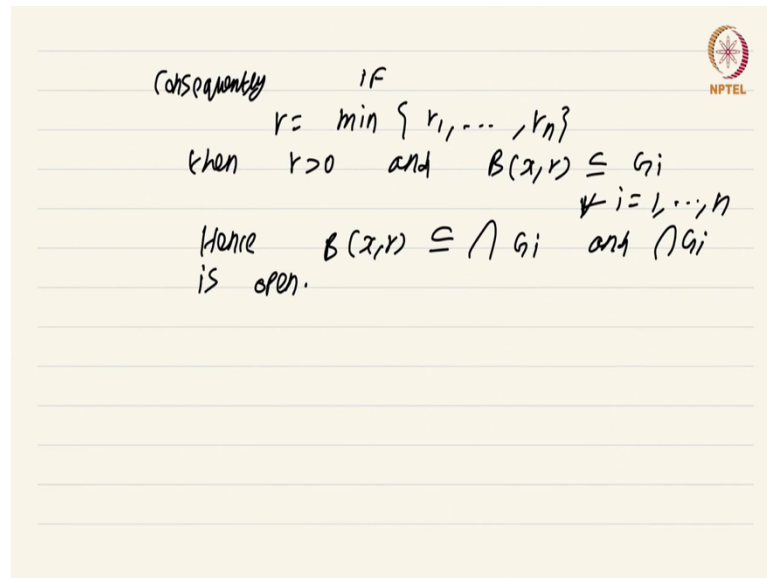 NPTEL
Consequently if
r = min { r1, ... , rn }
then r>0 and B(x,r) ⊆ Gi
∀ i = 1, ..., n
Hence B(x,r) ⊆ ⋂ Gi and ⋂Gi
is open.